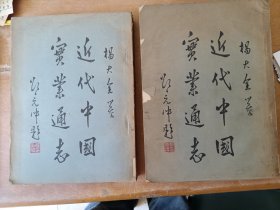 楊大金著
近代中國
實業通志
邵元冲題
楊大金著
近代中國
實業通志
邵元冲題